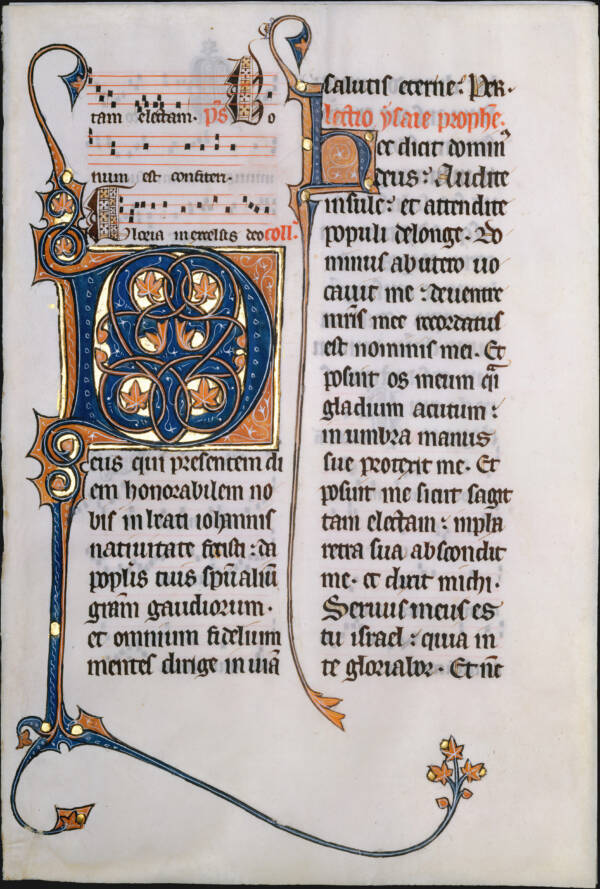 tam electam. ps Bo
num est confiteri.
Gloria in excelsis deo coll.
Deus qui presentem di
em honorabilem no
bis in beati iohannis
natiuitate fecisti: da
poplis tuis spũaliũ
grãm gaudiorum.
et omnium fidelium
mentes dirige in uiã
salutis eterne: Per.
lectio ysaie prophe.
Hec dicit domin⁹
deus: Audite
insule: et attendite
populi de longe. Do
minus ab utero uo
cauit me: de uentre
mris mee recordatus
est nominis mei. Et
posuit os meum q̃i
gladium acutum:
in umbra manus
sue protexit me. Et
posuit me sicut sagit
tam electam: in pha
retra sua abscondit
me. et dixit michi.
Seruus meus es
tu israel: quia in
te gloriabor. Et nc̃